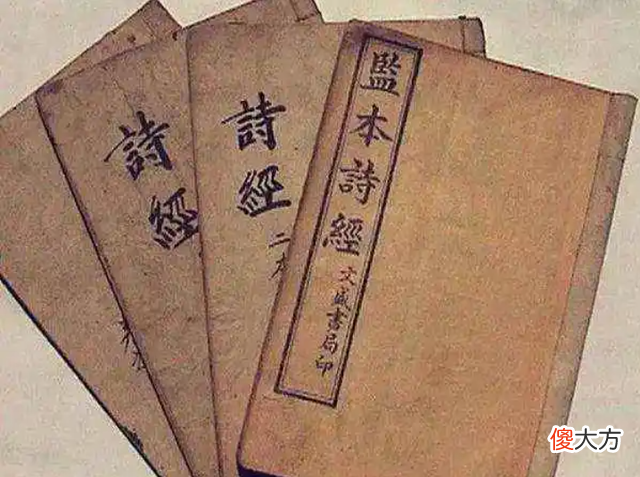 監本詩經
文盛書局印
詩經
二本
詩經
傻大方